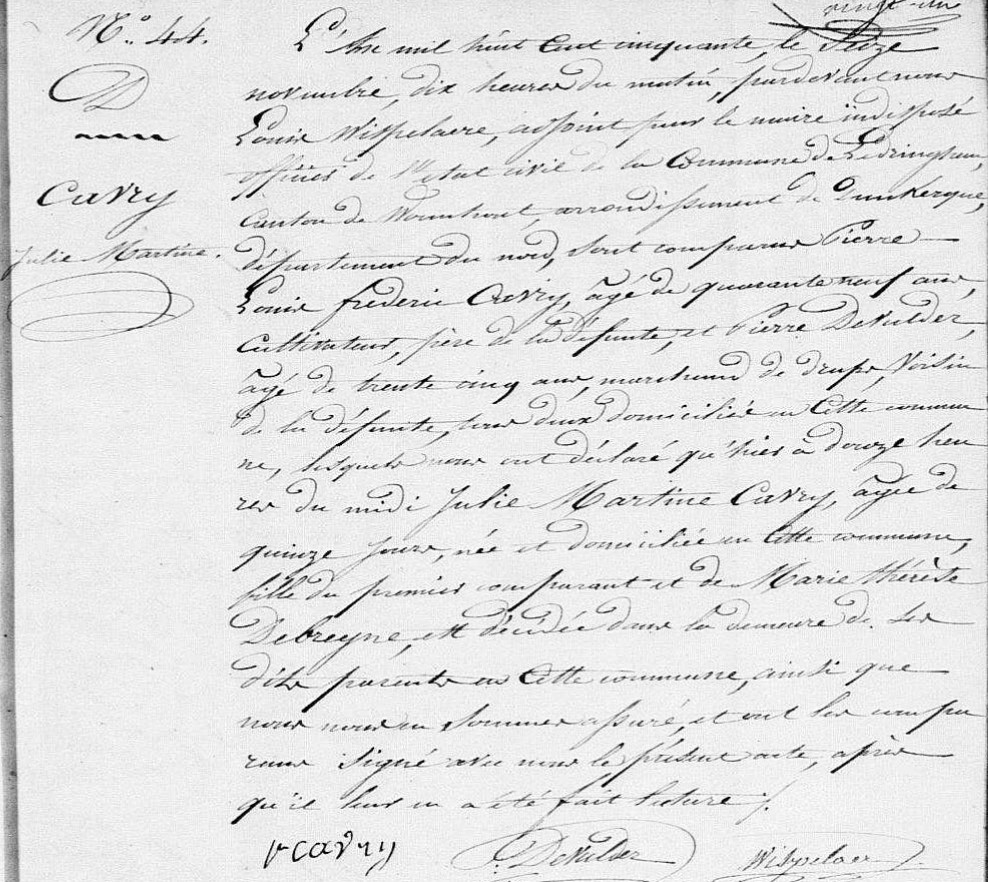 vingt-un
N.° 44.
D
Cavry
Julie Martine.
L'An mil huit cent cinquante, le Seize
novembre, dix heures du matin, pardevant nous
Louis Wispelaere, adjoint pour le maire indisposé
officier de l'état civil de la Commune de Ledringhem,
Canton de Wormhout, arrondissement de Dunkerque,
département du nord, sont comparus Pierre
Louis frederic Cavry, âgé de quarante neuf ans,
Cultivateur, père de la défunte, et Pierre DeVulder,
âgé de trente cinq ans, marchand de draps, Voisin
de la défunte, tous deux domiciliés en Cette commu
ne, lesquels nous ont déclaré qu'hier à douze heu
res du midi Julie Martine Cavry, âgée de
quinze jours, née et domiciliée en Cette commune,
fille du premier comparant et de Marie thérèse
Debreyne, est décédée dans la demeure de ses
dits parents en Cette commune, ainsi que
nous nous en sommes assuré, et ont les compa
rans signé avec nous le présent acte, après
qu'il leur en a été fait lecture ./.
Cavry
DeVulder
Wispelaer